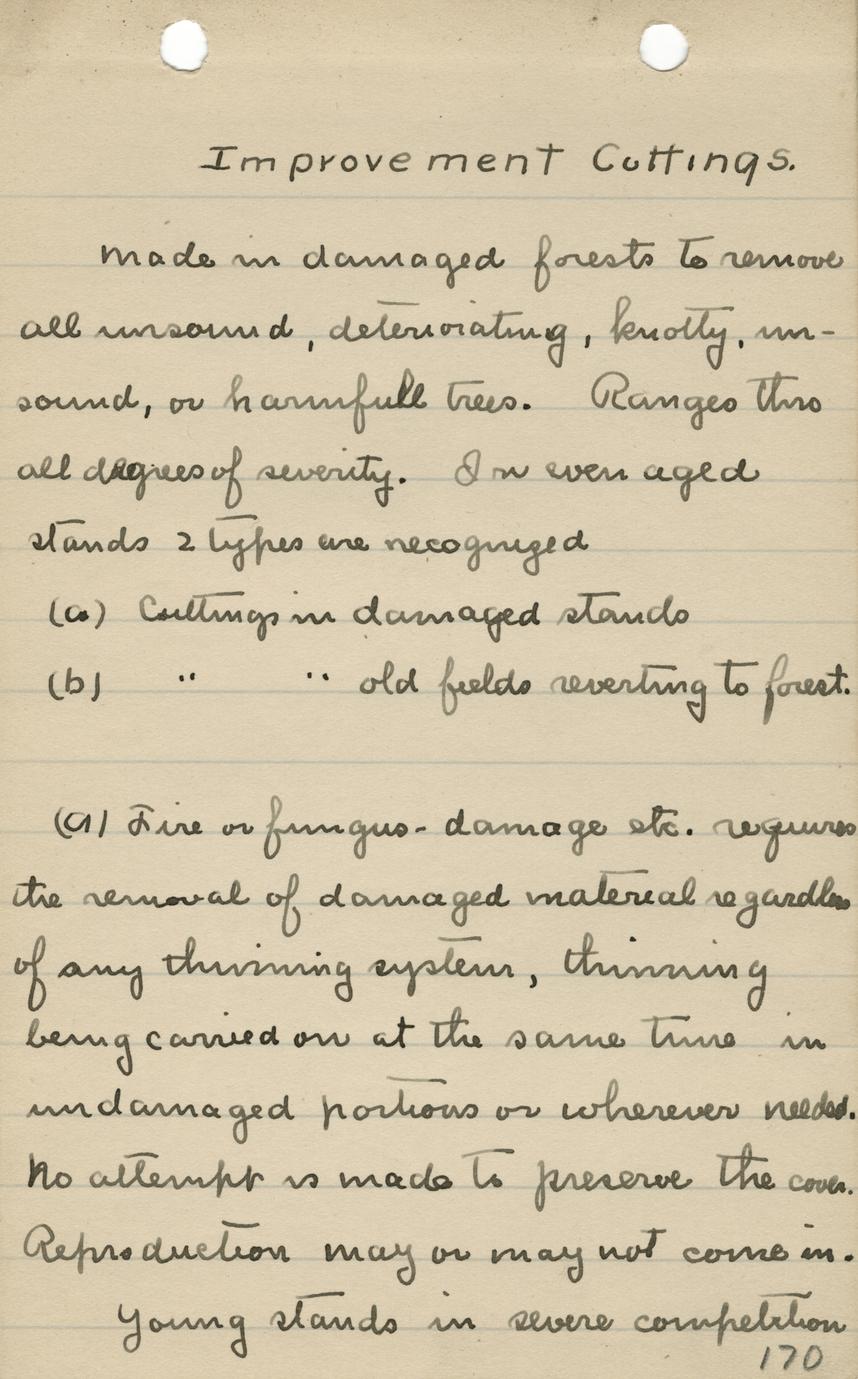 Improvement Cuttings.
Made in damaged forests to remove
all unsound, deteriorating, knotty, un-
sound, or harmfull trees. Ranges thro
all degrees of severity. In even aged
stands 2 types are recognized
(a) Cuttings in damaged stands
(b) " " old fields reverting to forest.
(a) Fire or fungus-damage etc. requires
the removal of damaged material regardless
of any thinning system, thinning
being carried on at the same time in
undamaged portions or wherever needed.
No attempt is made to preserve the cover.
Reproduction may or may not come in.
Young stands in severe competition
170